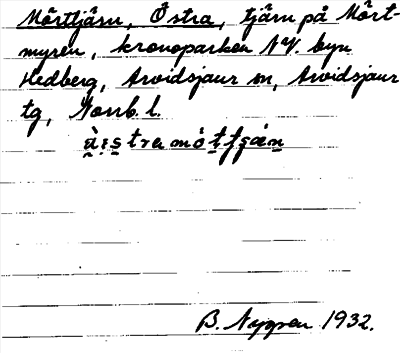 Mörttjärn, Östra, tjärn på Mört-
myren, kronoparken NV. byn
Hedberg, Arvidsjaur sn, Arvidsjaur
tg, Norrb. l.
B. Nygren 1932.